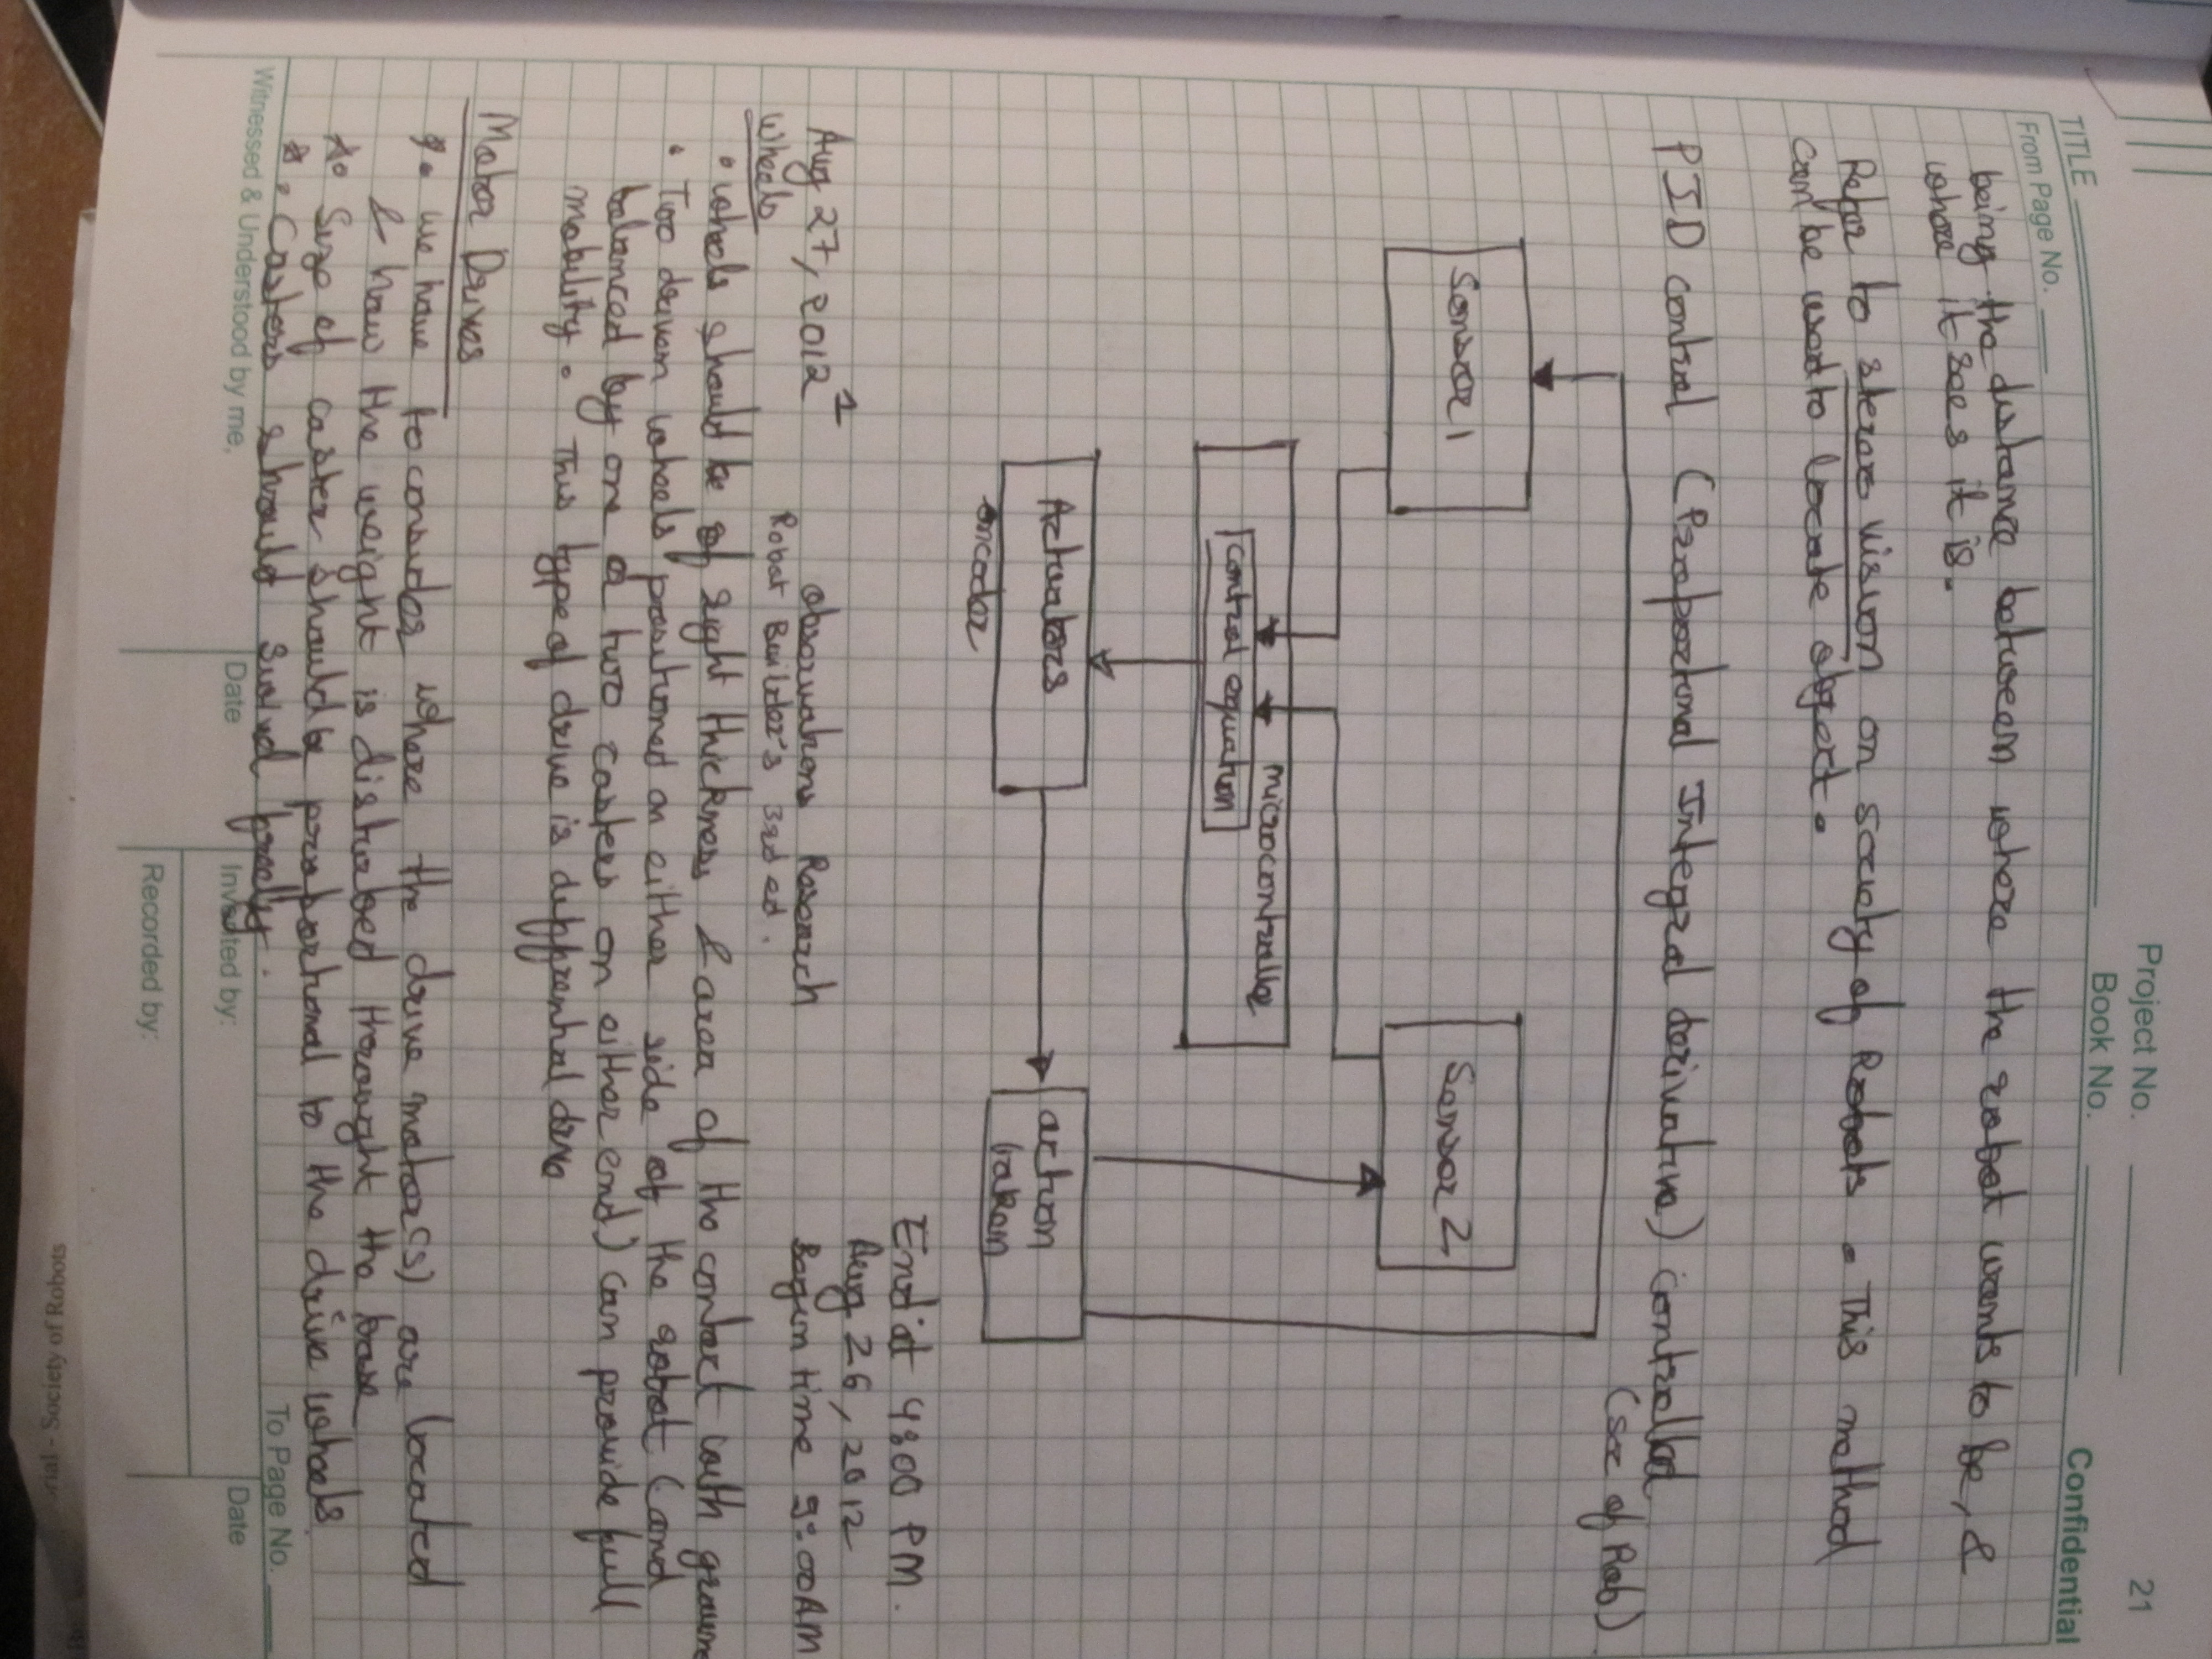 Project No.
21
TITLE
Book No.
Confidential
From Page No.
being the distance between where the robot wants to be, &
where it sees it is.
Refer to stereo vision on society of Robots. This method
can be used to locate object.
PID control (Proportional Integral derivative) controlled
(soc of Rob)
Sensor 1
Sensor 2
microcontroller
control equation
Actuators
action
taken
encoder
End at 4:00 PM.
Aug 26, 2012
Aug 27, 2012
1
observations Research
Begin time 9:00AM
Wheels
Robot Builder's 3rd ed.
• wheels should be of right thickness & area of the contact with ground
• Two driven wheels positioned on either side of the robot (and
balanced by one or two casters on either end) can provide full
mobility. This type of drive is differential drive
Motor Drives
• we have to consider where the drive motor(s) are located
& how the weight is disturbed throught the base
• Size of caster should be proportional to the drive wheels
• Casters should swivel freely.
Witnessed & Understood by me,
Date
Invented by:
To Page No.
Date
Recorded by:
rial - Society of Robots